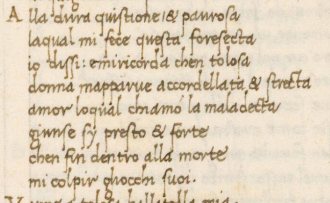 Alla dura quistione, & paurosa
laqual mi fece questa foresecta
io dissi: emiricorda chen tolosa
donna mapparve accordellata, & strecta
amor loqual chiamo la maladecta
giunse sy presto & forte
chen fin dentro alla morte
mi colpir ghocchi suoi.